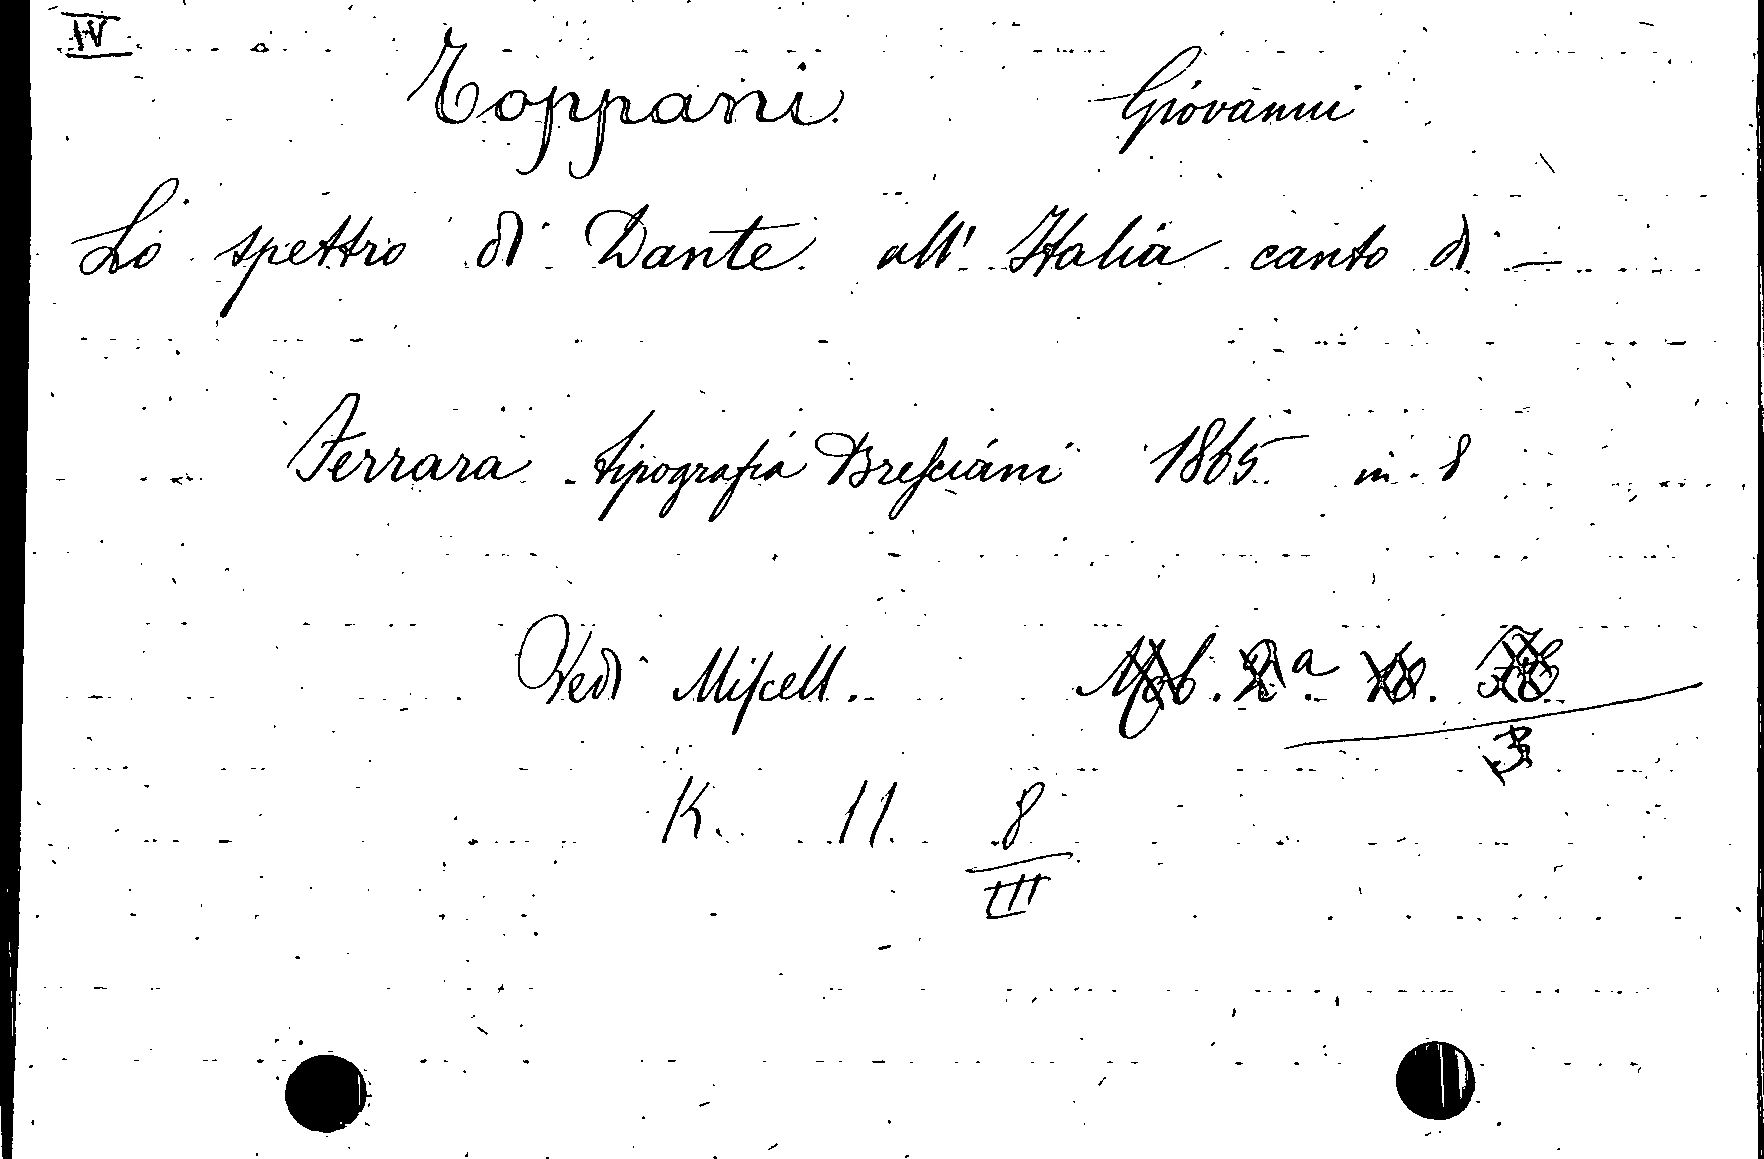 IV
Toppani Giovanni
Lo spettro di Dante all' Italia canto di —
Ferrara tipografia Bresciani 1865 in 8
Vedi Miscell.
K. 11 8
III